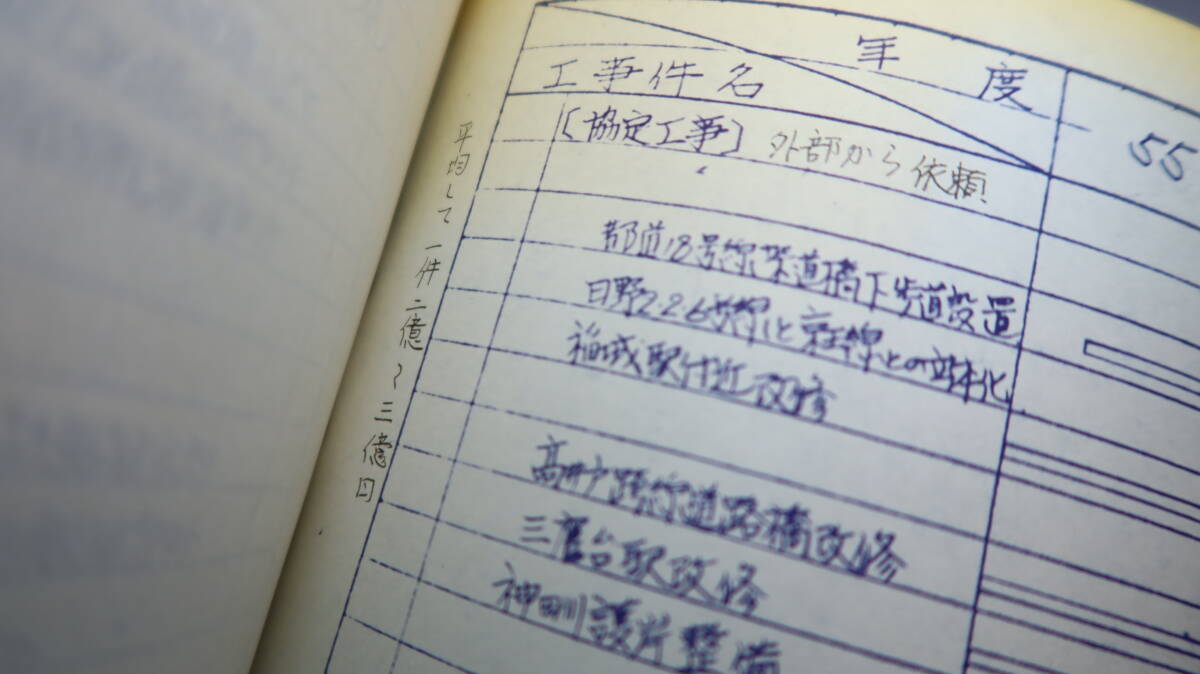 年度
工事件名
55
〔協定工事〕外部から依頼
都道18号線架道橋下歩道設置
日野2.2.6号線と京王線との立体化
稲城駅付近改修
高井戸跨線道路橋改修
三鷹台駅改修
神田川護岸整備
平均して一件二億〜三億円